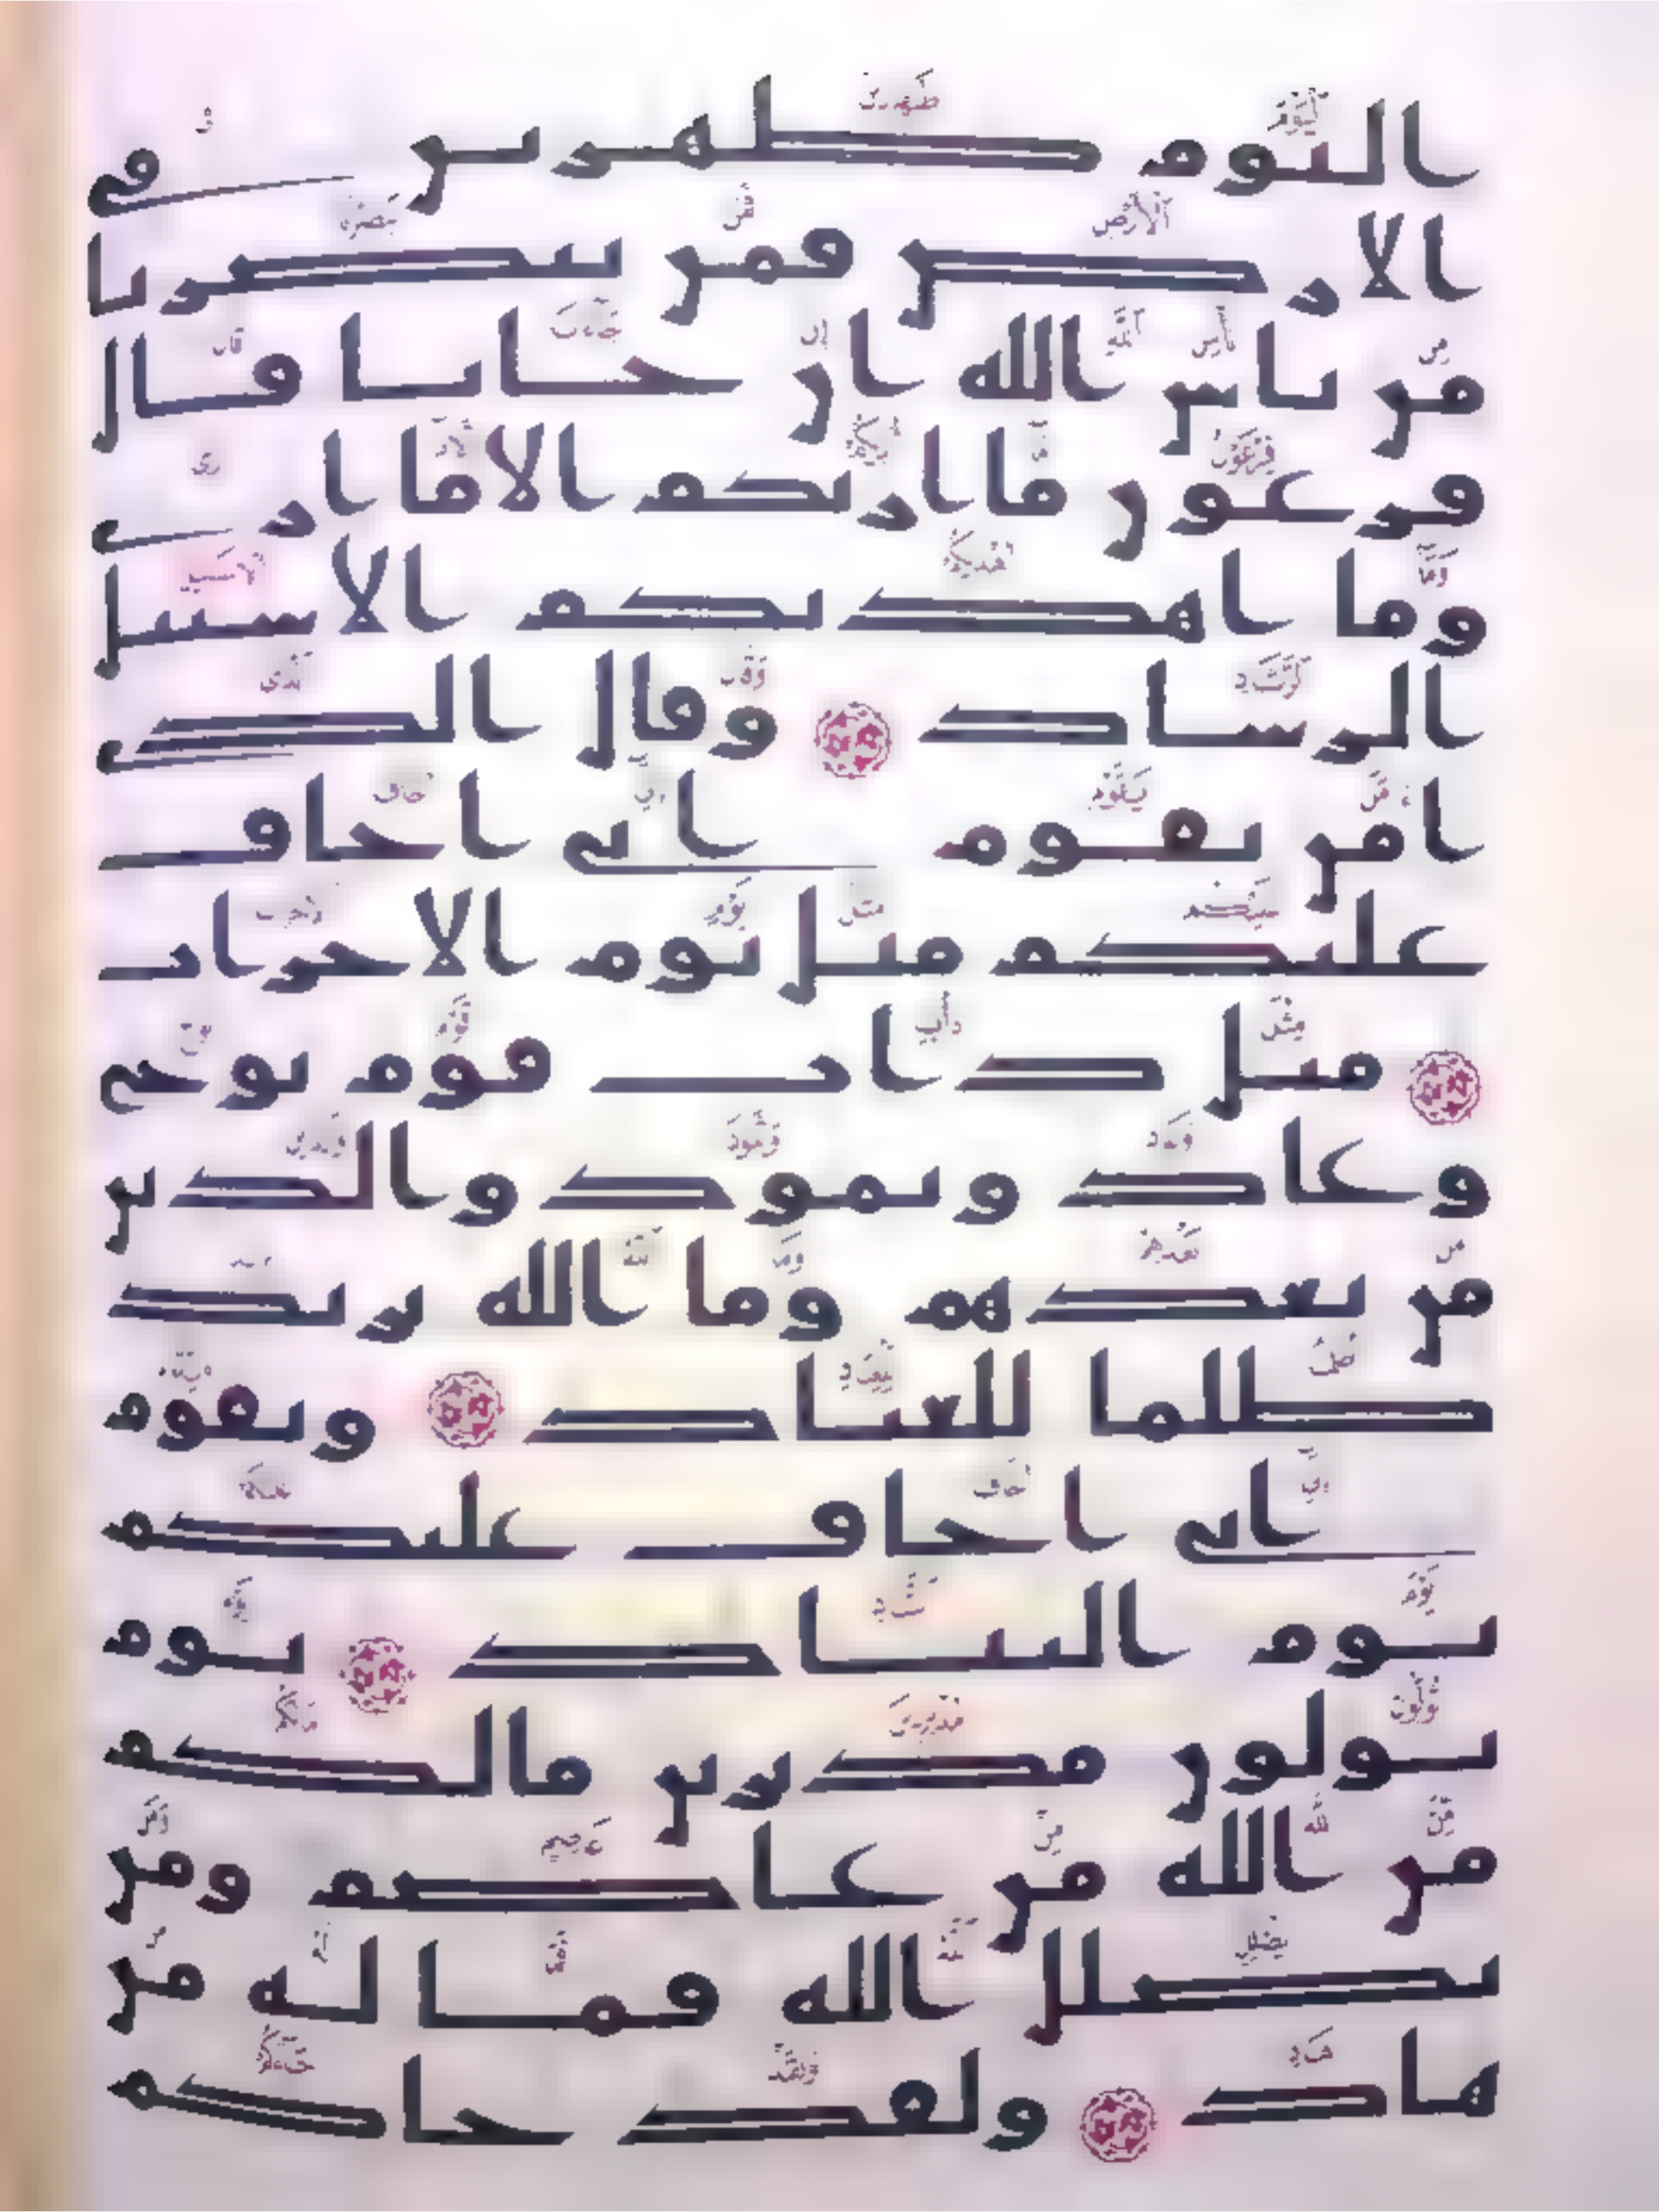 اليوم ظهرين في
الارض فمن ينصرنا
من باس الله ان جانا قال
فرعون ما اريكم الا ما ارى
وما اهديكم الا سبيل
الرشاد وقال الذي
امن يقوم اني اخاف
عليكم مثل يوم الاحزاب
مثل داب قوم نوح
وعاد وثمود والذين
من بعدهم وما الله يريد
ظلما للعباد ويقوم
اني اخاف عليكم
يوم التناد يوم
تولون مدبرين مالكم
من الله من عاصم ومن
يضلل الله فما له من
هاد ولقد جاكم